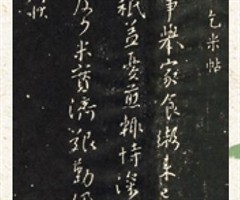 乞米帖
事舉家食粥來已
秖益憂煎輒恃深
及少米實濟艱勤仍
狀